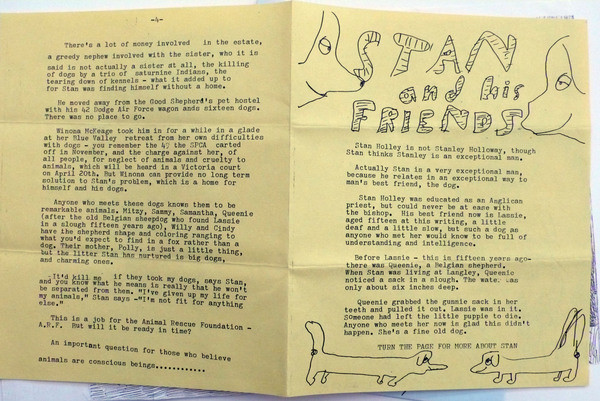 -4-
There's a lot of money involved in the estate,
a greedy nephew involved with the sister, who it is
said is not actually a sister at all, the killing
of dogs by a trio of saturnine Indians, the
tearing down of kennels - what it added up to
for Stan was finding himself without a home.
He moved away from the Good Shepherd's pet hostel
with his 42 Dodge Air Force wagon ands sixteen dogs.
There was no place to go.
Winona McKeage took him in for a while in a glade
at her Blue Valley retreat from her own difficulties
with dogs - you remember the 47 the SPCA carted
off in November, and the charge against her, of
all people, for neglect of animals and cruelty to
animals, which will be heard in a Victoria court
on April 20th. But Winona can provide no long term
solution to Stan's problem, which is a home for
himself and his dogs.
Anyone who meets these dogs knows them to be
remarkable animals. Mitzy, Sammy, Samantha, Queenie
(after the old Belgian sheepdog who found Lassie
in a slough fifteen years ago), Willy and Cindy
have the shepherd shape and coloring ranging to
what you'd expect to find in a fox rather than a
dog. Their mother, Polly, is just a little thing,
but the litter Stan has nurtured is big dogs,
and charming ones.
-It'd kill me if they took my dogs, says Stan,
and you know what he means is really that he won't
be separated from them. "I've given up my life for
my animals," Stan says -"I'm not fit for anything
else."
This is a job for the Animal Rescue Foundation -
A.R.F. But will it be ready in time?
An important question for those who believe
animals are conscious beings............
STAN
and his
FRIENDS
Stan Holley is not Stanley Holloway, though
Stan thinks Stanley is an exceptional man.
Actually Stan is a very exceptional man,
because he relates in an exceptional way to
man's best friend, the dog.
Stan Holley was educated as an Anglican
priest, but could never be at ease with
the bishop. His best friend now is Lassie,
aged fifteen at this writing, a little
deaf and a little slow, but such a dog as
anyone who met her would know to be full of
understanding and intelligence.
Before Lassie - this is fifteen years ago-
there was Queenie, a Belgian shepherd.
When Stan was living at Langley, Queenie
noticed a sack in a slough. The water was
only about six inches deep.
Queenie grabbed the gunnie sack in her
teeth and pulled it out. Lassie was in it.
Someone had left the little puppie to die.
Anyone who meets her now is glad this didn't
happen. She's a fine old dog.
TURN THE PAGE FOR MORE ABOUT STAN